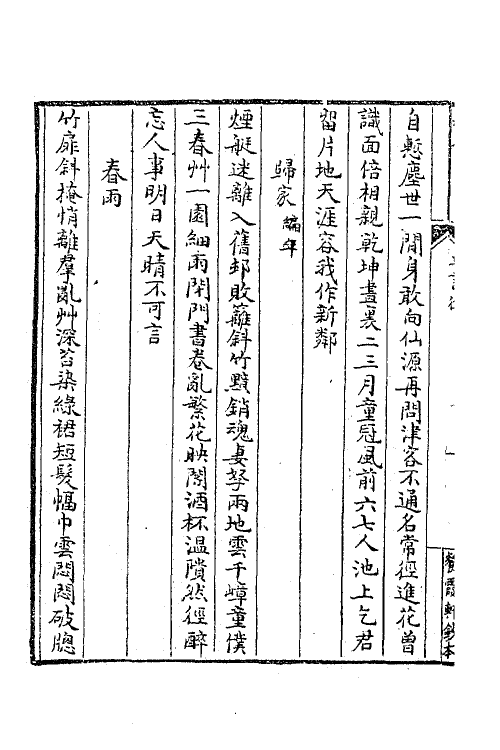 自慙塵世一閒身敢向仙源再問津客不通名常徑進花曽
識面倍相親乾坤畫裏二三月童冠風前六七人池上乞君
留片地天涯容我作新鄰
歸家編年
煙艇迷離入舊邨敗籬斜竹黯銷魂妻孥兩地雲千嶂童僕
三春艸一園細雨閉門書卷亂繁花映閣酒杯温隤然徑醉
忘人事明日天晴不可言
春雨
竹扉斜掩悄離羣亂艸深苔染綠裙短髮幅巾雲悶悶破牕